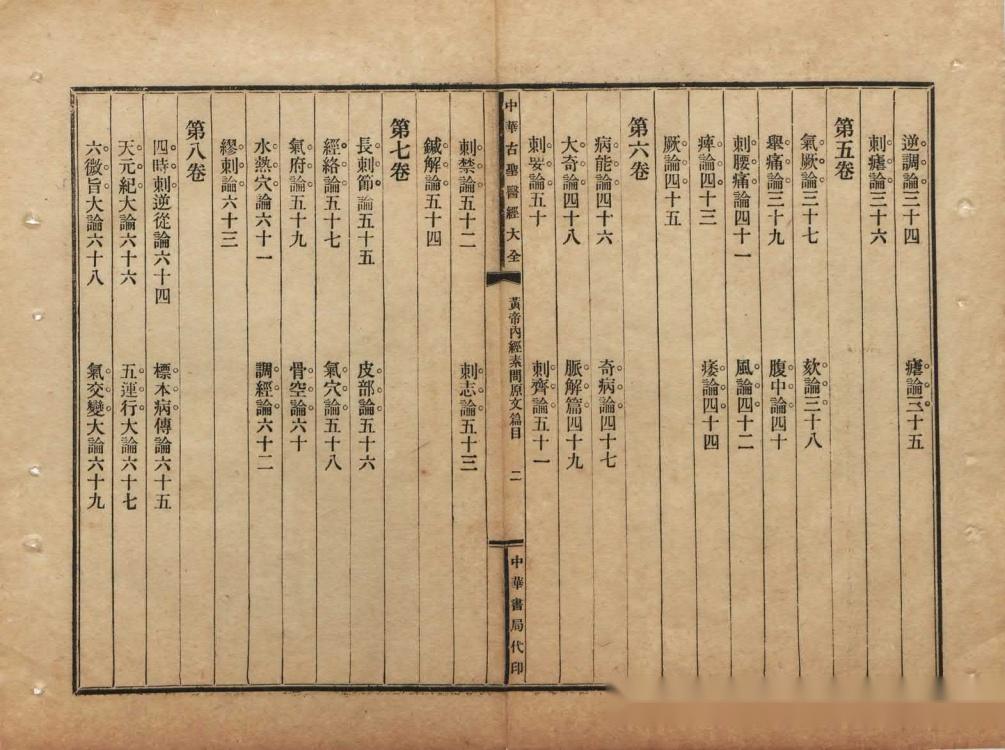 逆調論三十四 瘧論三十五
刺瘧論三十六
第五卷
氣厥論三十七 欬論三十八
舉痛論三十九 腹中論四十
刺腰痛論四十一 風論四十二
痺論四十三 痿論四十四
厥論四十五
第六卷
病能論四十六 奇病論四十七
大奇論四十八 脈解篇四十九
刺要論五十 刺齊論五十一
中華古聖醫經大全 黃帝內經素問原文篇目 二 中華書局代印
刺禁論五十二 刺志論五十三
鍼解論五十四
第七卷
長刺節論五十五 皮部論五十六
經絡論五十七 氣穴論五十八
氣府論五十九 骨空論六十
水熱穴論六十一 調經論六十二
繆刺論六十三
第八卷
四時刺逆從論六十四 標本病傳論六十五
天元紀大論六十六 五運行大論六十七
六微旨大論六十八 氣交變大論六十九